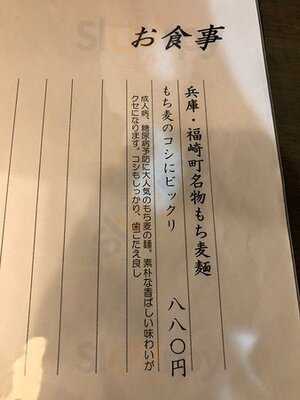 お食事
兵庫・福崎町名物もち麦麺
八八〇円
もち麦のコシにビックリ
成人病、糖尿病予防に大人気のもち麦の麺。素朴な香ばしい味わいが
クセになります。コシもしっかり、歯ごたえ良し